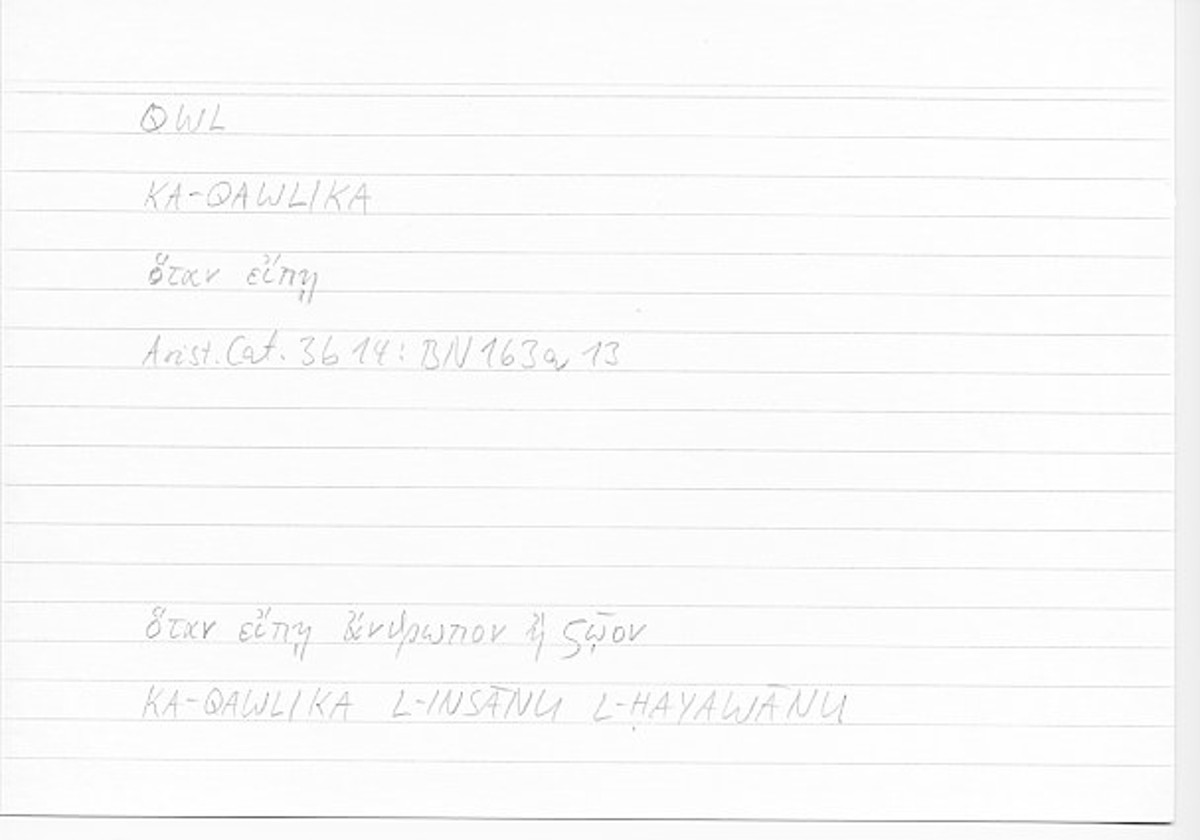 QWL
KA-QAWLIKA
ὅταν εἴπῃ
Arist. Cat. 3b 14 : BN 163a 13
ὅταν εἴπῃ ἄνθρωπον ἢ ζῷον
KA-QAWLIKA L-INSĀNU L-ḤAYAWĀNU